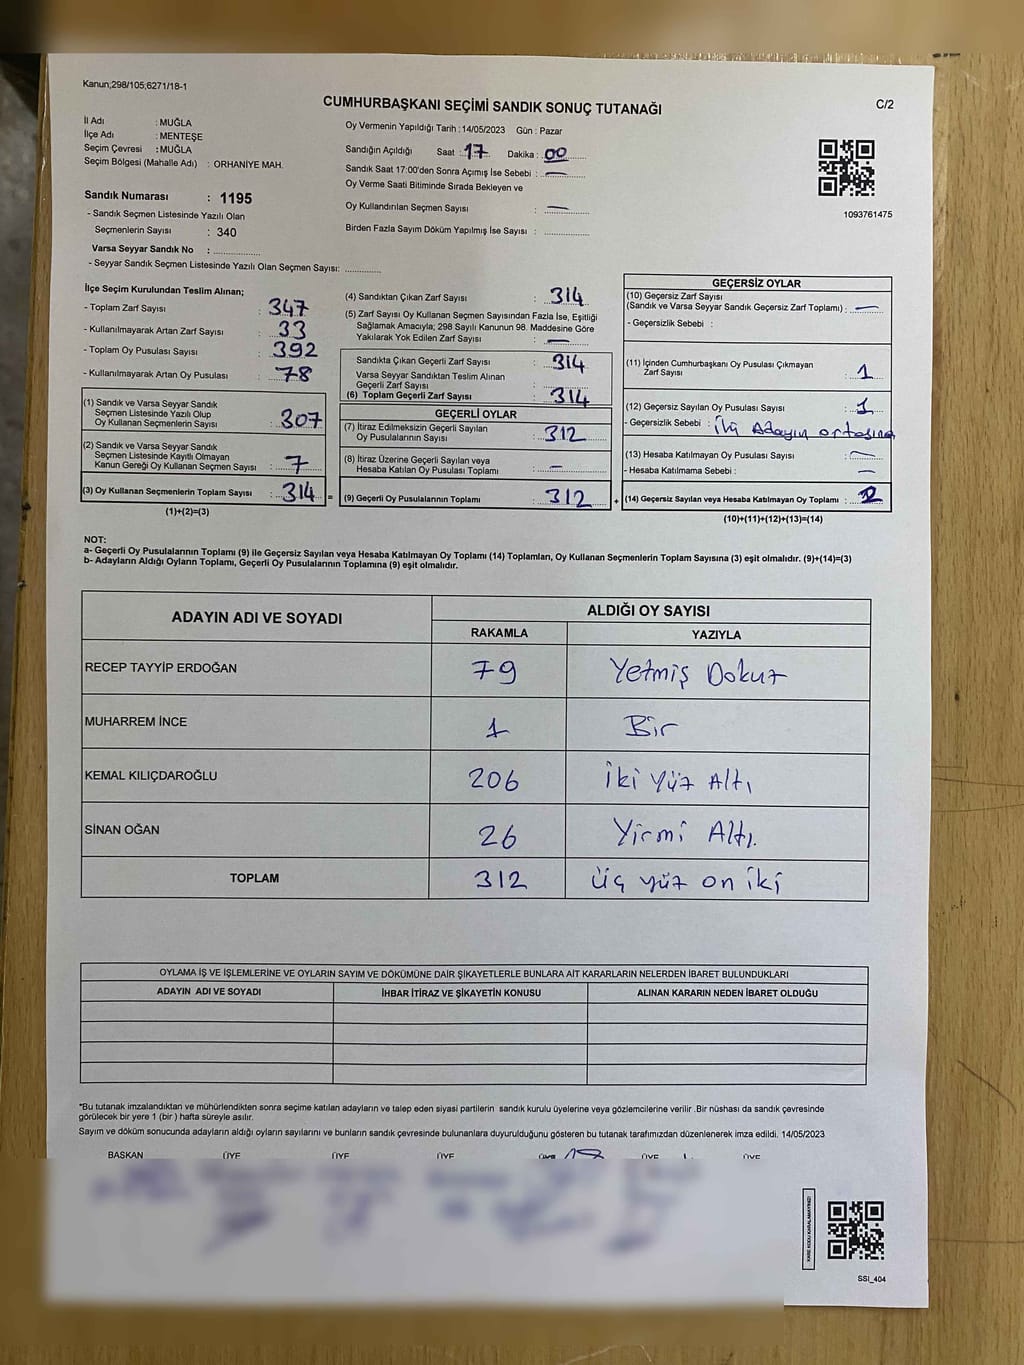 Kanun;298/105;6271/18-1
CUMHURBAŞKANI SEÇİMİ SANDIK SONUÇ TUTANAĞI
C/2
İl Adı : MUĞLA
İlçe Adı : MENTEŞE
Seçim Çevresi : MUĞLA
Seçim Bölgesi (Mahalle Adı) : ORHANİYE MAH.
Sandık Numarası : 1195
- Sandık Seçmen Listesinde Yazılı Olan
Seçmenlerin Sayısı : 340
Varsa Seyyar Sandık No : ..............
- Seyyar Sandık Seçmen Listesinde Yazılı Olan Seçmen Sayısı: ............
Oy Vermenin Yapıldığı Tarih : 14/05/2023 Gün : Pazar
Sandığın Açıldığı Saat : 17 Dakika : 00
Sandık Saat 17:00'den Sonra Açılmış İse Sebebi : —
Oy Verme Saati Bitiminde Sırada Bekleyen ve
Oy Kullandırılan Seçmen Sayısı : —
Birden Fazla Sayım Döküm Yapılmış İse Sayısı : ..............
1093761475
İlçe Seçim Kurulundan Teslim Alınan;
- Toplam Zarf Sayısı : 347
- Kullanılmayarak Artan Zarf Sayısı : 33
- Toplam Oy Pusulası Sayısı : 392
- Kullanılmayarak Artan Oy Pusulası : 78
(1) Sandık ve Varsa Seyyar Sandık
Seçmen Listesinde Yazılı Olup
Oy Kullanan Seçmenlerin Sayısı : 307
(2) Sandık ve Varsa Seyyar Sandık
Seçmen Listesinde Kayıtlı Olmayan
Kanun Gereği Oy Kullanan Seçmen Sayısı : 7
(3) Oy Kullanan Seçmenlerin Toplam Sayısı : 314 =
(1)+(2)=(3)
(4) Sandıktan Çıkan Zarf Sayısı : 314
(5) Zarf Sayısı Oy Kullanan Seçmen Sayısından Fazla İse, Eşitliği
Sağlamak Amacıyla; 298 Sayılı Kanunun 98. Maddesine Göre
Yakılarak Yok Edilen Zarf Sayısı : —
Sandıkta Çıkan Geçerli Zarf Sayısı : 314
Varsa Seyyar Sandıktan Teslim Alınan
Geçerli Zarf Sayısı :
(6) Toplam Geçerli Zarf Sayısı : 314
GEÇERLİ OYLAR
(7) İtiraz Edilmeksizin Geçerli Sayılan
Oy Pusulalarının Sayısı : 312
(8) İtiraz Üzerine Geçerli Sayılan veya
Hesaba Katılan Oy Pusulası Toplamı : —
(9) Geçerli Oy Pusulalarının Toplamı : 312 +
GEÇERSİZ OYLAR
(10) Geçersiz Zarf Sayısı
(Sandık ve Varsa Seyyar Sandık Geçersiz Zarf Toplamı) : —
- Geçersizlik Sebebi :
(11) İçinden Cumhurbaşkanı Oy Pusulası Çıkmayan
Zarf Sayısı : 1
(12) Geçersiz Sayılan Oy Pusulası Sayısı : 1
- Geçersizlik Sebebi : İki Adayın ortasına
(13) Hesaba Katılmayan Oy Pusulası Sayısı : —
- Hesaba Katılmama Sebebi : —
(14) Geçersiz Sayılan veya Hesaba Katılmayan Oy Toplamı : 2
(10)+(11)+(12)+(13)=(14)
NOT:
a- Geçerli Oy Pusulalarının Toplamı (9) ile Geçersiz Sayılan veya Hesaba Katılmayan Oy Toplamı (14) Toplamları, Oy Kullanan Seçmenlerin Toplam Sayısına (3) eşit olmalıdır. (9)+(14)=(3)
b- Adayların Aldığı Oyların Toplamı, Geçerli Oy Pusulalarının Toplamına (9) eşit olmalıdır.
ADAYIN ADI VE SOYADI ALDIĞI OY SAYISI
RAKAMLA YAZIYLA
RECEP TAYYİP ERDOĞAN 79 Yetmiş Dokuz
MUHARREM İNCE 1 Bir
KEMAL KILIÇDAROĞLU 206 İki yüz Altı
SİNAN OĞAN 26 Yirmi Altı.
TOPLAM 312 üç yüz on iki
OYLAMA İŞ VE İŞLEMLERİNE VE OYLARIN SAYIM VE DÖKÜMÜNE DAİR ŞİKAYETLERLE BUNLARA AİT KARARLARIN NELERDEN İBARET BULUNDUKLARI
ADAYIN ADI VE SOYADI İHBAR İTİRAZ VE ŞİKAYETİN KONUSU ALINAN KARARIN NEDEN İBARET OLDUĞU
*Bu tutanak imzalandıktan ve mühürlendikten sonra seçime katılan adayların ve talep eden siyasi partilerin sandık kurulu üyelerine veya gözlemcilerine verilir .Bir nüshası da sandık çevresinde
görülecek bir yere 1 (bir ) hafta süreyle asılır.
Sayım ve döküm sonucunda adayların aldığı oyların sayılarını ve bunların sandık çevresinde bulunanlara duyurulduğunu gösteren bu tutanak tarafımızdan düzenlenerek imza edildi. 14/05/2023
BAŞKAN ÜYE ÜYE ÜYE ÜYE ÜYE ÜYE
KARE KODU KARALAMAYINIZ!
SSI_404